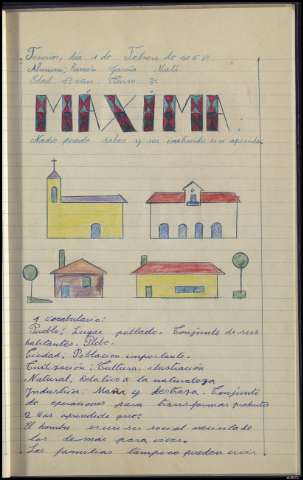 día 1 de Febrero de
Alumno; Ramón García Martí
Edad 13 años. Curso 3º
MÁXIMA.
Nadie puede saber y ser instruido sin aprender
1 vocabulario:
Pueblo; Lugar poblado. Conjunto de sus
habitantes. Plebe.
Ciudad, Poblacion importante.
Civilización; Cultura, ilustración
Natural, Relativo a la naturaleza
Industria. Maña y destreza. Conjunto
de operaciones para transformar productos
2 Has aprendido que:
El hombre es un ser social necesita de
los demás para vivir.
Las familias tampoco pueden vivir